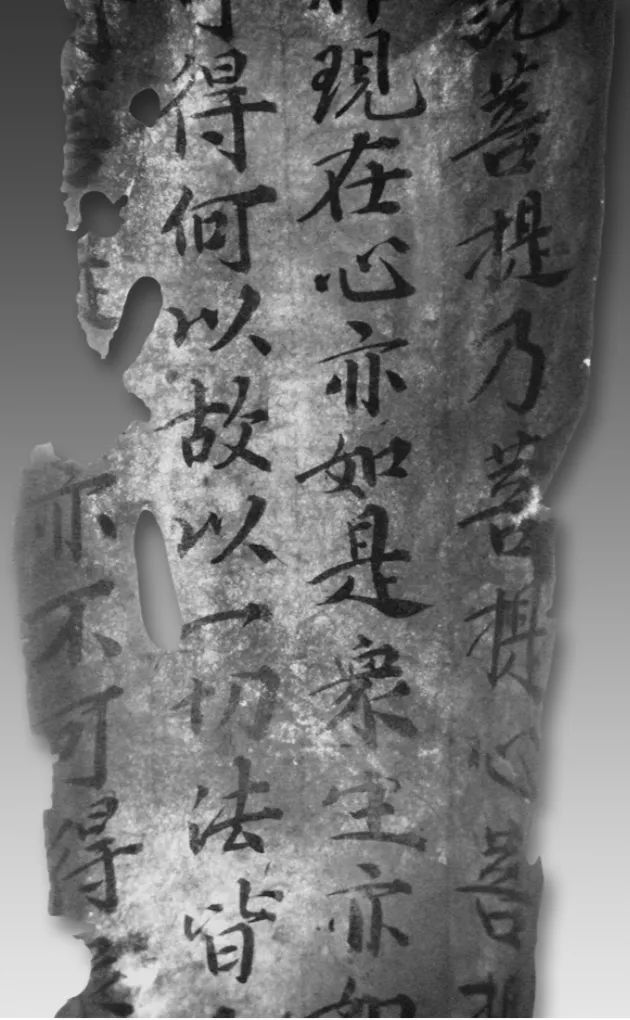 說菩提乃菩提心菩提
現在心亦如是衆生亦如
得何以故以一切法皆
亦不可得